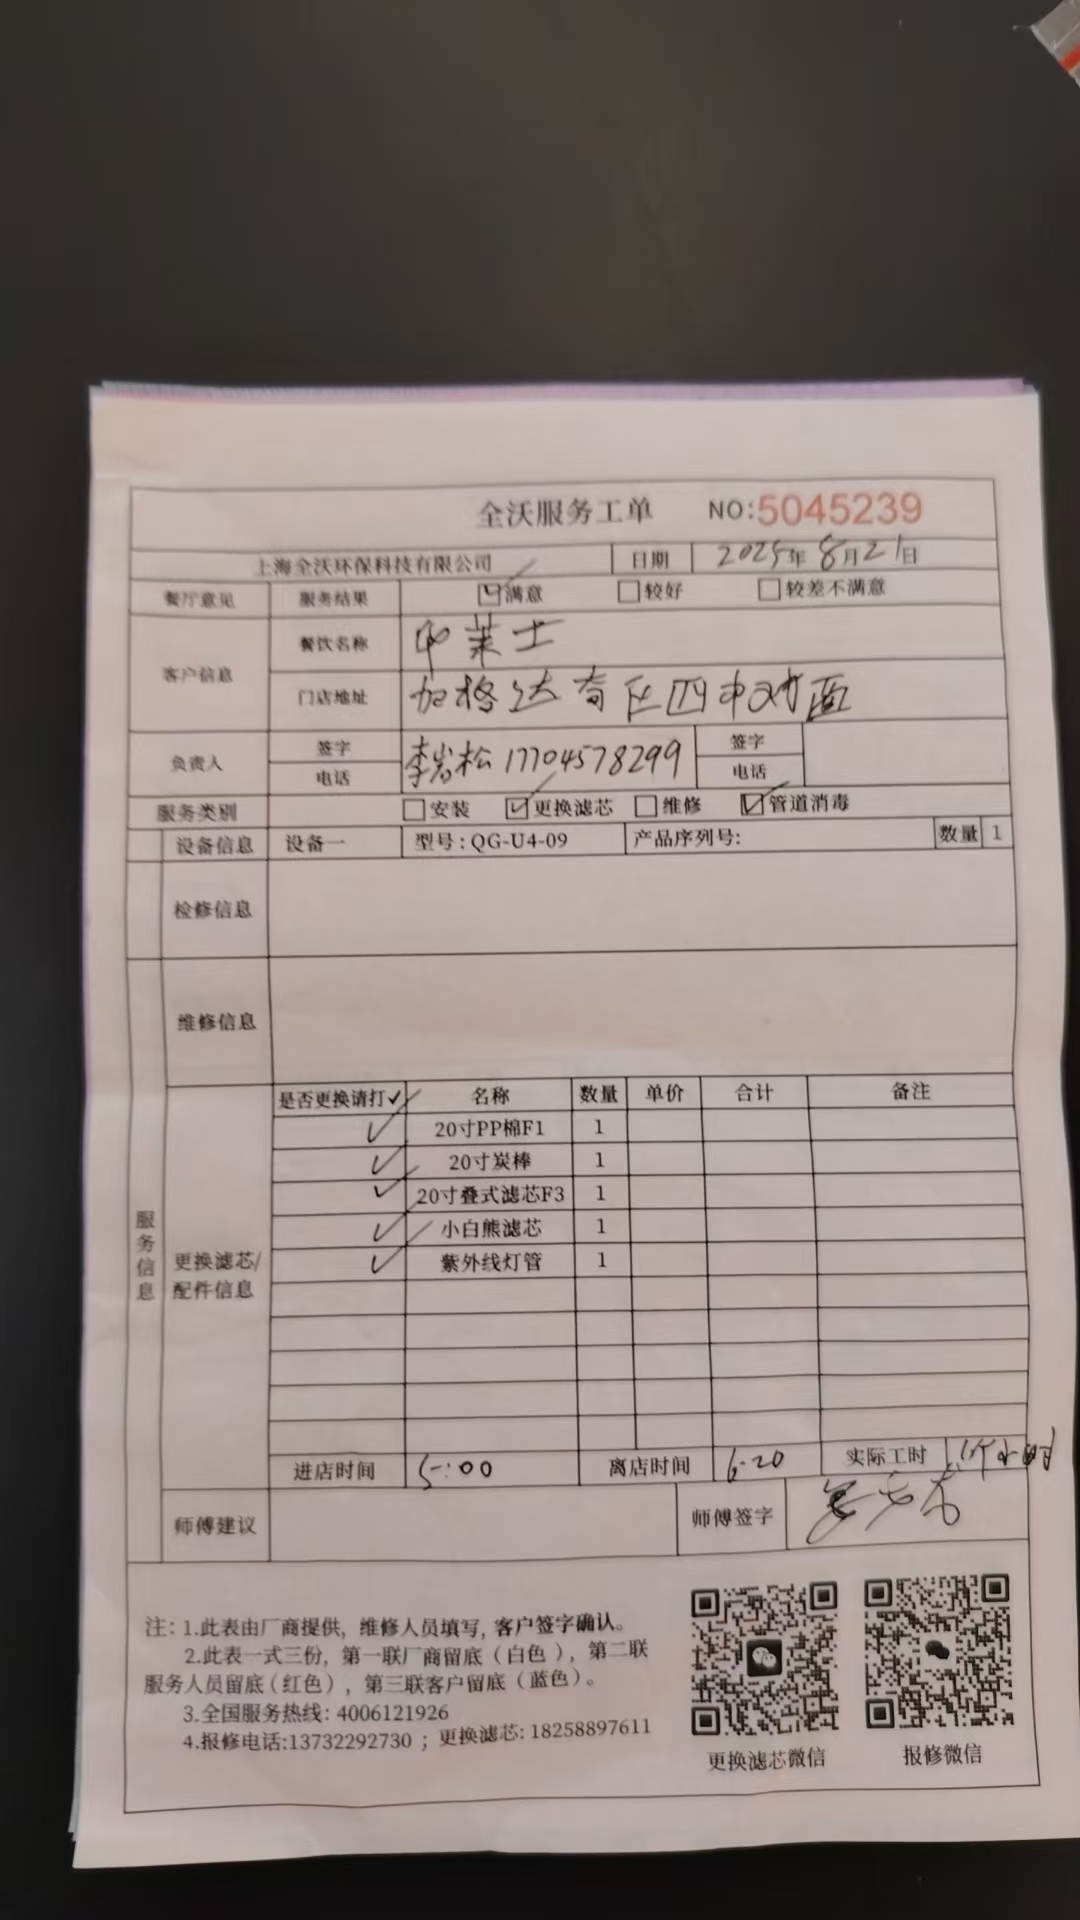 全沃服务工单 NO:5045239
上海全沃环保科技有限公司 日期 2025年8月21日
餐厅意见 服务结果 ☑满意 ☐较好 ☐较差不满意
客户信息 餐饮名称 华莱士
门店地址 加格达奇区四中对面
负责人 签字 李岩松 17704578299 签字
电话 电话
服务类别 ☐安装 ☑更换滤芯 ☐维修 ☑管道消毒
设备信息 设备一 型号:QG-U4-09 产品序列号: 数量 1
检修信息
维修信息
服务信息
更换滤芯/
配件信息
是否更换请打✓ 名称 数量 单价 合计 备注
✓ 20寸PP棉F1 1
✓ 20寸炭棒 1
✓ 20寸叠式滤芯F3 1
✓ 小白熊滤芯 1
✓ 紫外线灯管 1
进店时间 5:00 离店时间 6:20 实际工时 1个小时
师傅建议 师傅签字
注: 1.此表由厂商提供, 维修人员填写, 客户签字确认。
2.此表一式三份, 第一联厂商留底(白色), 第二联
服务人员留底(红色), 第三联客户留底(蓝色)。
3.全国服务热线: 4006121926
4.报修电话:13732292730 ; 更换滤芯: 18258897611
更换滤芯微信 报修微信